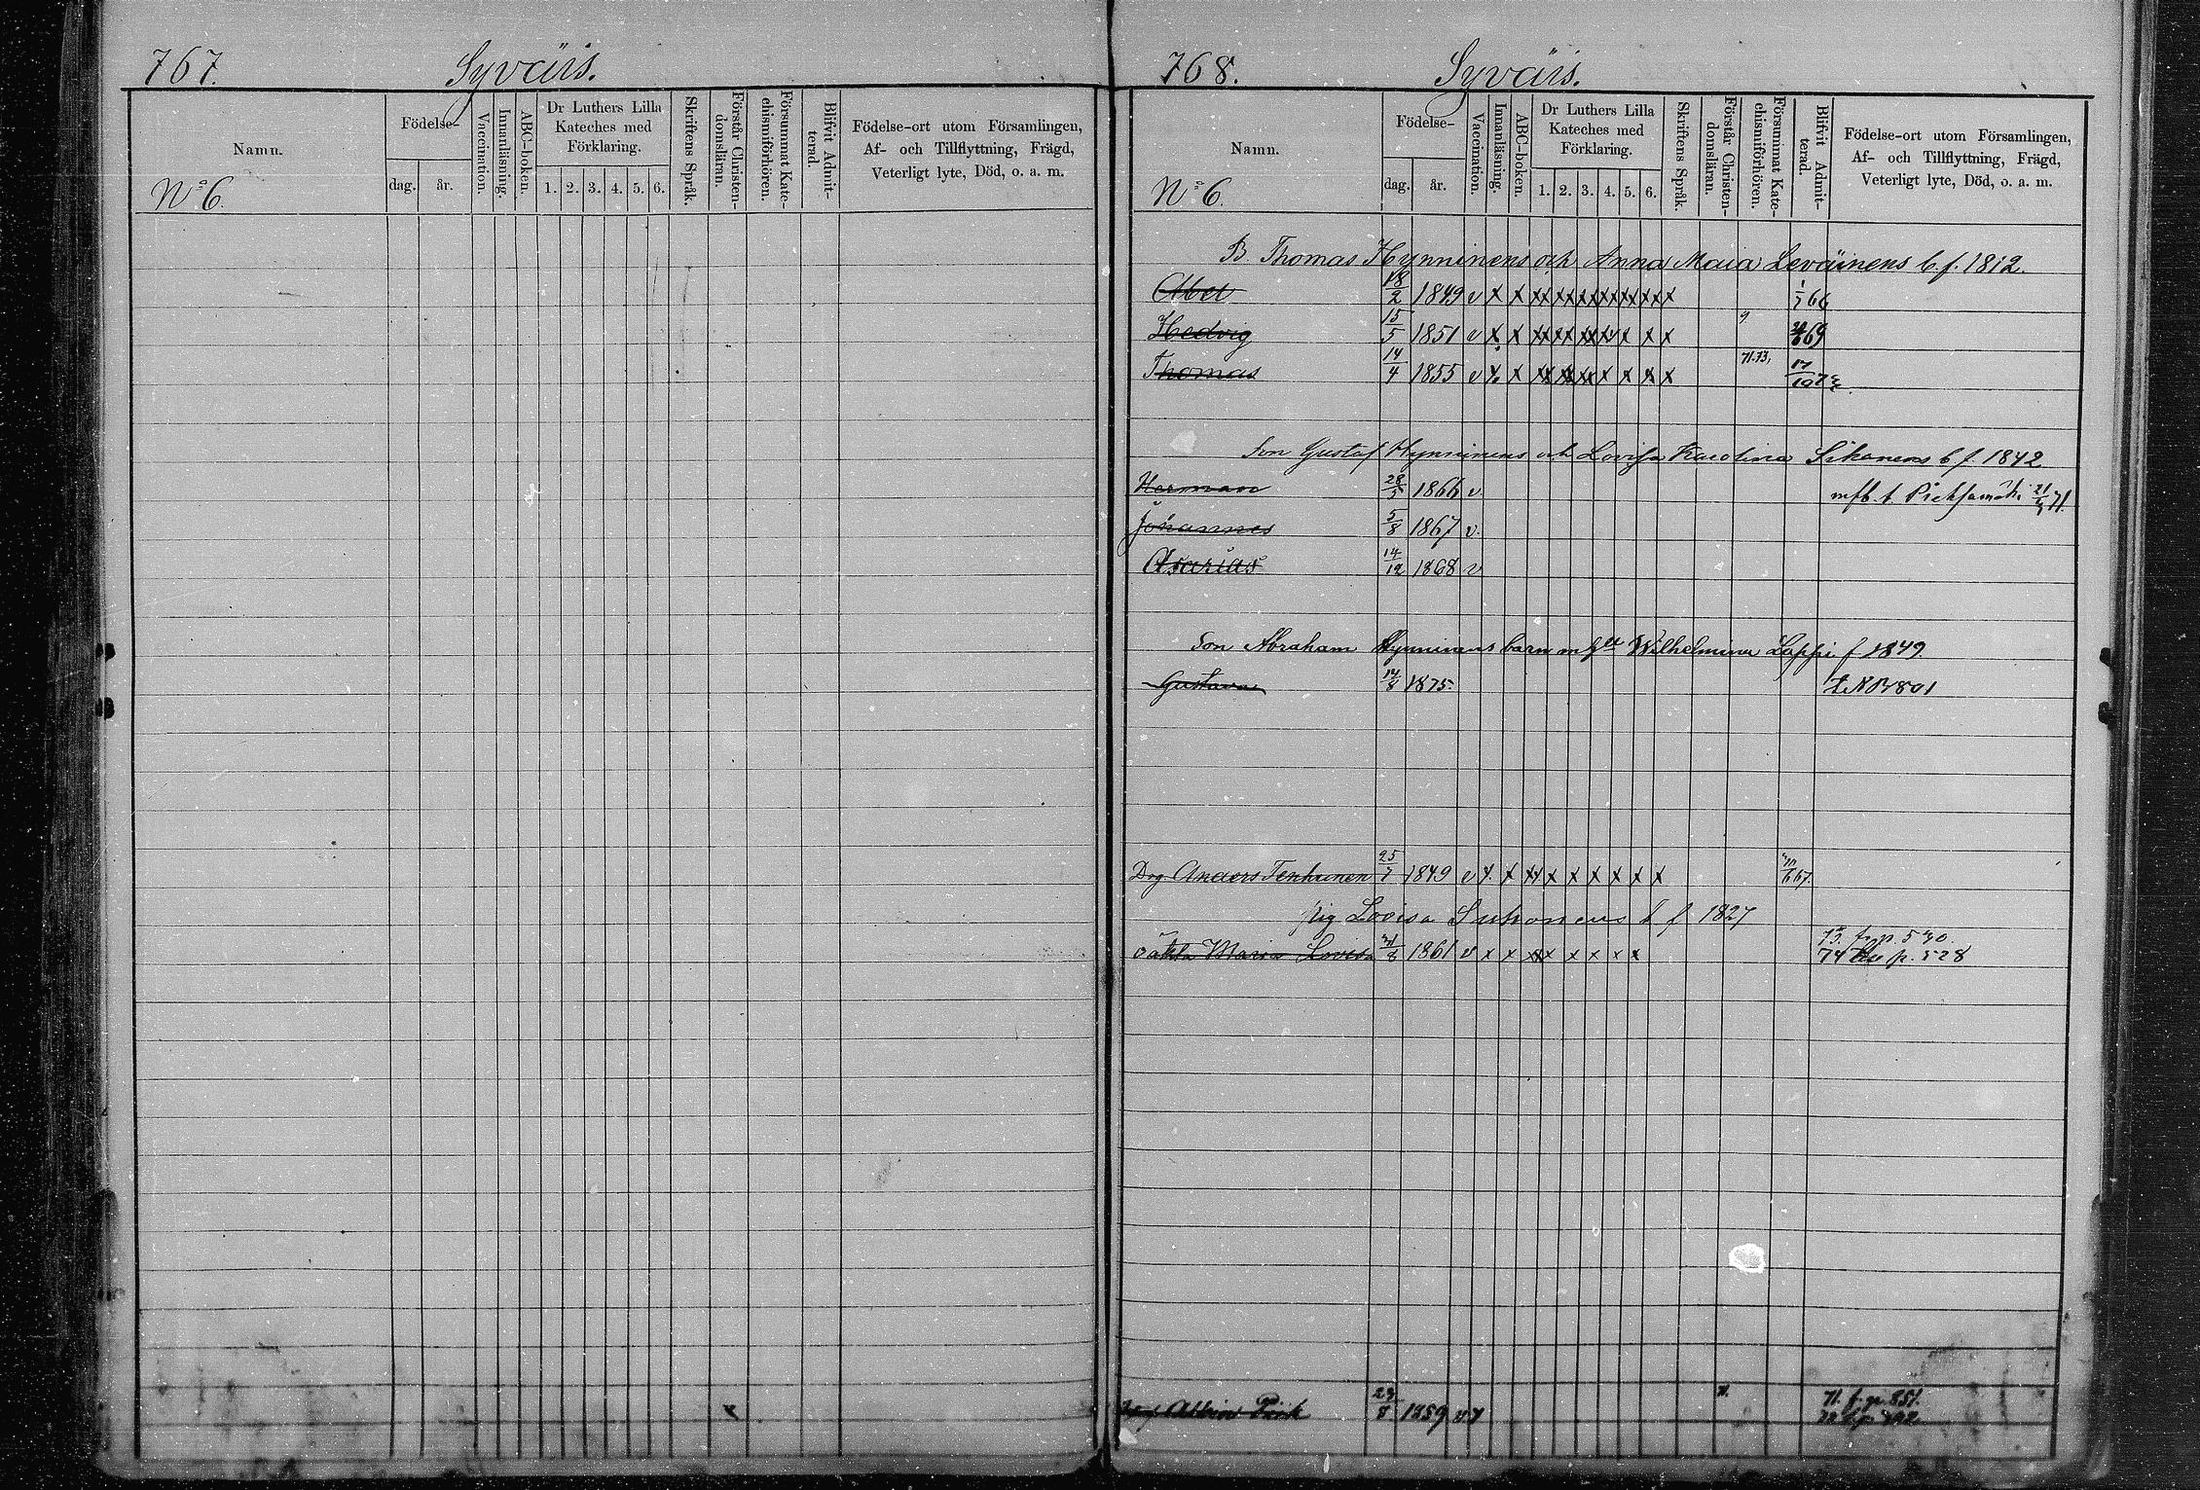 767. Syväis.
Namn. Födelse- Vaccination. Innanläsning. ABC-boken. Dr Luthers Lilla Kateches med Förklaring. Skriftens Språk. Förstår Christendomsläran. Försummat Katechismiförhören. Blifvit Admitterad. Födelse-ort utom Församlingen, Af- och Tillflyttning, Frägd, Veterligt lyte, Död, o. a. m.
dag. år. 1. 2. 3. 4. 5. 6.
No 6.
768. Syväis.
Namn. Födelse- Vaccination. Innanläsning. ABC-boken. Dr Luthers Lilla Kateches med Förklaring. Skriftens Språk. Förstår Christendomsläran. Försummat Katechismiförhören. Blifvit Admitterad. Födelse-ort utom Församlingen, Af- och Tillflyttning, Frägd, Veterligt lyte, Död, o. a. m.
dag. år. 1. 2. 3. 4. 5. 6.
No 6.
B. Thomas Hynninens och Anna Maia Leväinens b. f. 1812.
Abel 18/2 1849 v x x xx xx xx xx xx xx x 1/7 66
Hedvig 15/5 1851 v x x xx xx xx xx x x x 9 69
Thomas 14/4 1855 v x x xx xx xx x x x x 71.73,
Son Gustaf Hynninens och Lovisa Karolina Sikanens b f. 1842
Herman 28/5 1866 v. mfb. t. Pieksamäki 71.
Johannes 5/8 1867 v.
Asarias 14/12 1868 v
Son Abraham Hynninens barn m Wilhelmina Lappi f 1849.
Gustava 1875.
Drg. Anders Tenhunen 25/7 1849 v x. x xx x x x x x x 67.
Pig Lovisa Suhonens f 1827
oäkta Maria Lovisa 1861 v x x xx x x x x 73. fr p. 530
74 p. 528
Albin 1859 v x 71. fr. p. 851.